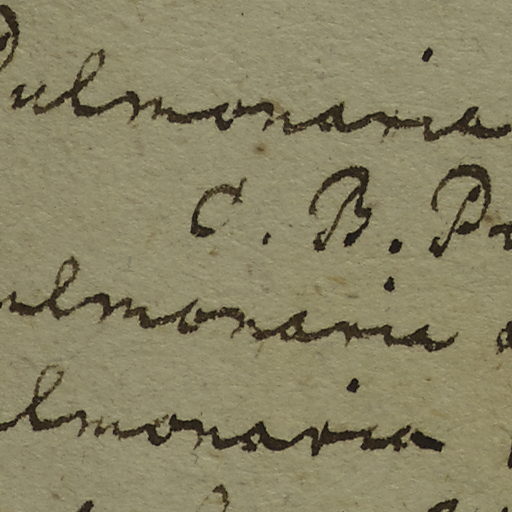 Pulmonaria
C. B. P
ulmonaria
ulmonaria